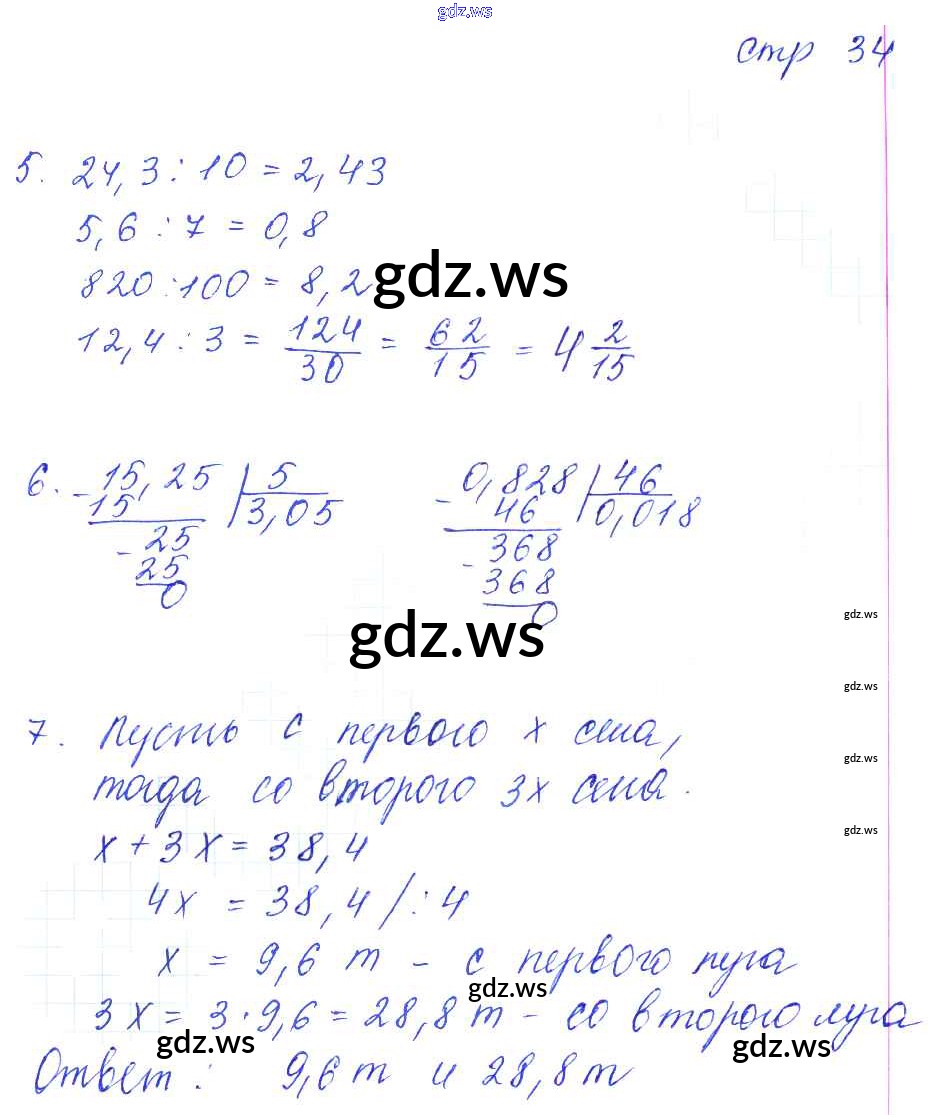 gdz.ws
стр 34
5. 24,3 : 10 = 2,43
5,6 : 7 = 0,8
820 : 100 = 8,2
gdz.ws
12,4 : 3 = 124/30 = 62/15 = 4 2/15
6. 15,25 | 5    0,828 | 46
- 15    3,05    - 46    0,018
- 25    - 368
25    368
0    0
gdz.ws
gdz.ws
gdz.ws
7. Пусть с первого x сена,
gdz.ws
тогда со второго 3x сена.
gdz.ws
x + 3x = 38,4
4x = 38,4 / : 4
x = 9,6 т - с первого луга
gdz.ws
3x = 3 · 9,6 = 28,8 т - со второго луга
gdz.ws gdz.ws
Ответ : 9,6 т и 28,8 т